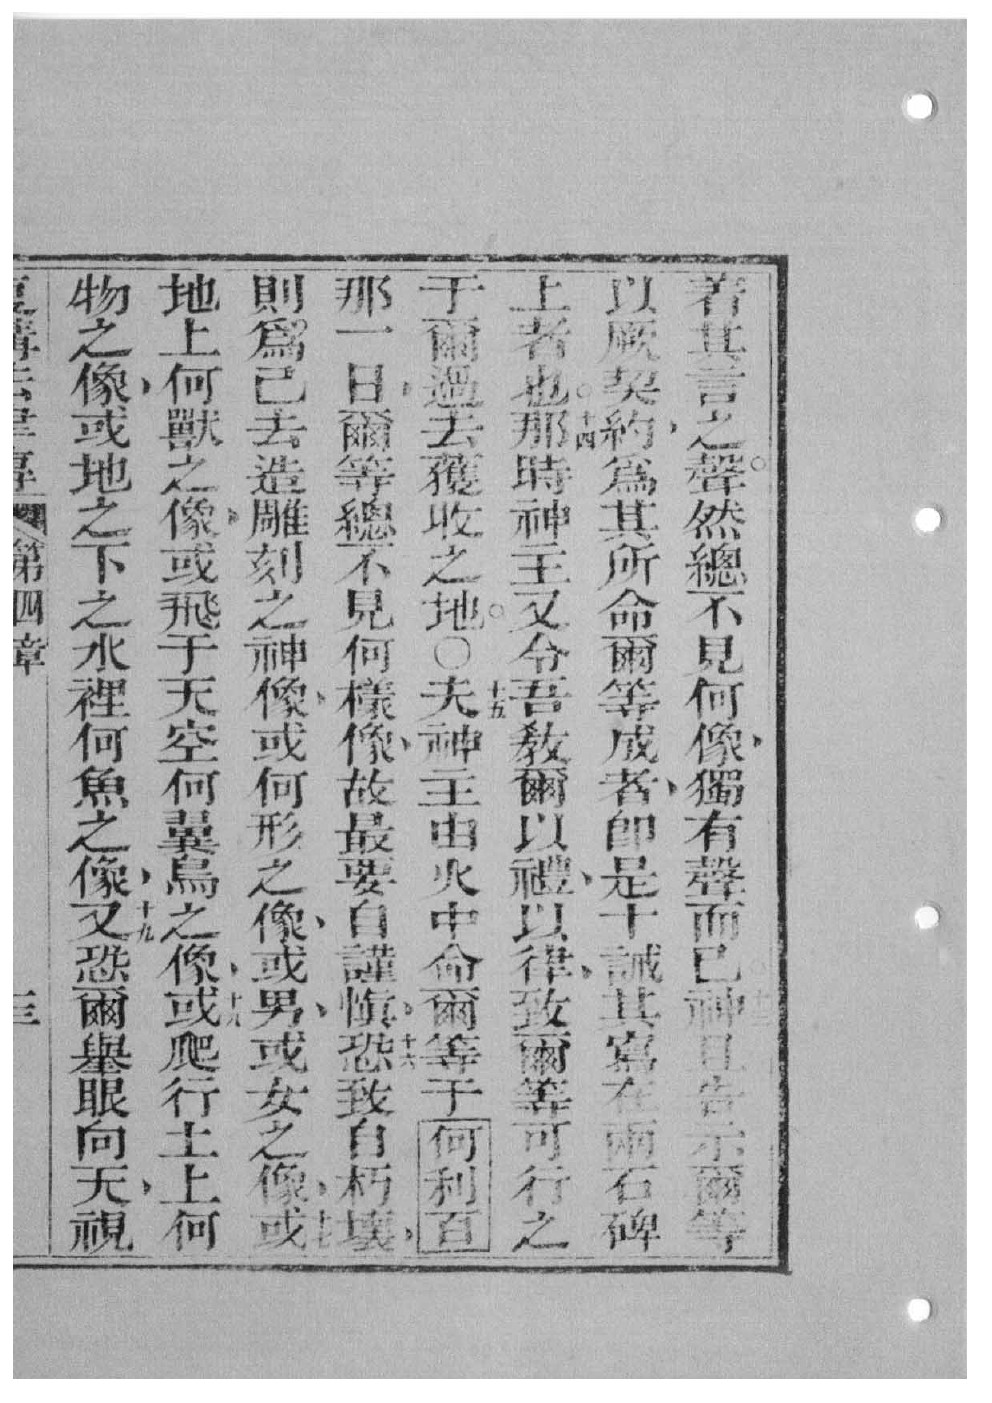 着其言之聲。然總不見何像、獨有聲而已。十三神且告示爾等
以厥契約、爲其所命爾等成者、即是十誡其寫在兩石碑
上者也。十四那時神主又令吾教爾以禮、以律、致爾等可行之
于爾過去獲收之地。〇十五夫神主由火中命爾等于何利百
那一日、爾等總不見何樣像、故最要自謹愼、十六恐致自朽壞、
則爲己去造雕刻之神像、或何形之像、或男、或女之像、十七或
地上何獸之像、或飛于天空何翼鳥之像、十八或爬行土上何
物之像、或地之下之水裡何魚之像、十九又恐爾舉眼向天、視
第四章 三